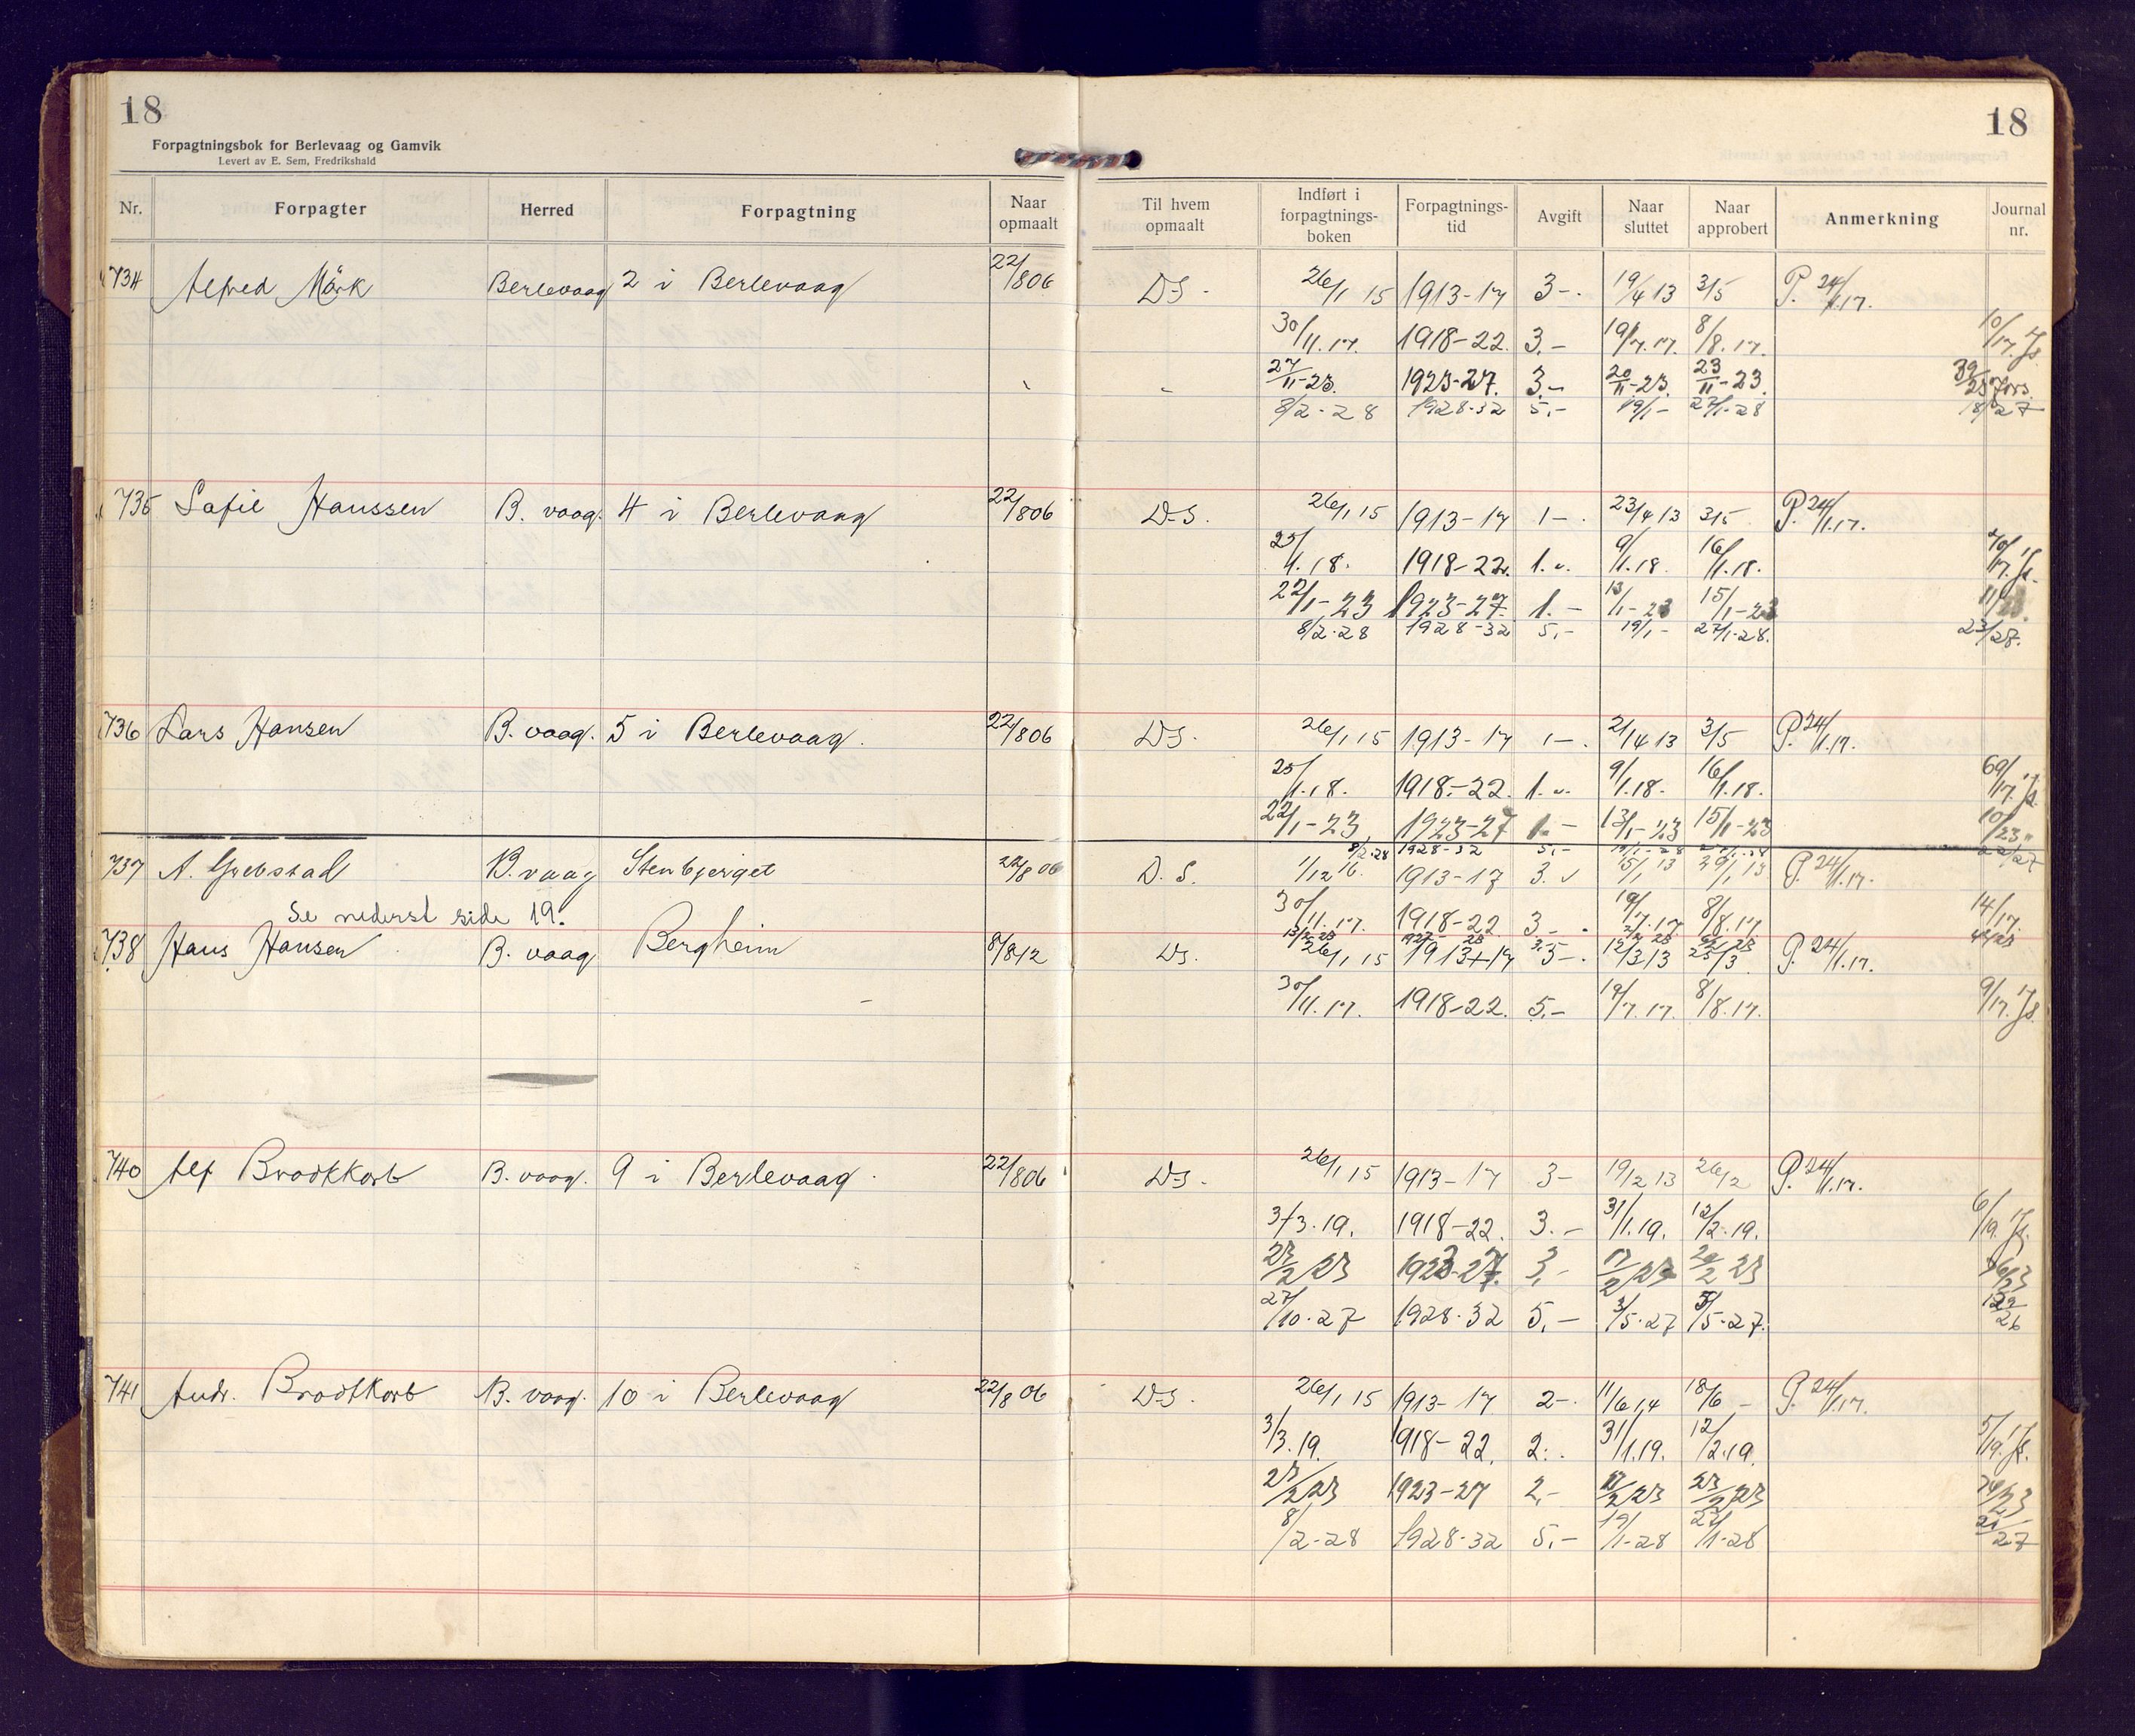 18
18
Forpagtningsbok for Berlevaag og Gamvik
Levert av E. Sem, Fredrikshald
Nr. Forpagter Herred Forpagtning Naar opmaalt Til hvem opmaalt Indført i forpagtnings-boken Forpagtnings-tid Avgift Naar sluttet Naar approbert Anmerkning Journal nr.
734 Alfred Mörk Berlevaag 2 i Berlevaag 22/8 06 DS. 26/1 15 1913-17 3-. 19/4 13 3/5 P. 24/1.17.
30/11.17. 1918-22. 3.- 19/7.17. 8/8.17. 10/17.
27/11-23. 1923-27. 3.- 20/11-23. 23/11-23.
8/2-28 1928-32 5.- 19/1- 27/1-28
735 Hanssen B. vaag. 4 i Berlevaag 22/8 06 DS. 26/1 15 1913-17 1-. 23/4 13 3/5 P. 24/1.17.
25/1.18. 1918-22. 1.- 9/1.18. 16/1.18.
22/1-23 1923-27. 1.- 13/1-23 15/1-23
8/2-28 1928-32 5.- 19/1- 27/1-28. 23/27.
736 Lars Hansen B. vaag. 5 i Berlevaag. 22/8 06 DS. 26/1 15 1913-17 1-. 21/4 13 3/5 P. 24/1.17.
25/1.18. 1918-22. 1.- 9/1.18. 16/1.18. 69/17.
22/1-23 1923-27 1.- 13/1-23 15/1-23 10/23
8/2-28 1928-32 5.- 22/27
737 A. Grebstad B. vaag Stenbjerget 22/8 06 D.S. 1/12 16. 1913-17 3. 15/1 13 P. 24/1.17.
Se nederst side 19.
30/11.17. 1918-22 3.- 19/7.17 8/8.17. 14/17.
738 Hans Hansen B. vaag Bergheim 8/8 12 DS. 26/1 15 1913-17 5-. 12/3 13 25/3 P. 24/1.17.
30/11.17. 1918-22. 5.- 19/7.17. 8/8.17. 9/17.
740 Alf Brodtkorb B. vaag. 9 i Berlevaag. 22/8 06 DS. 26/1 15 1913-17 3- 19/2 13 26/2 P. 24/1.17.
3/3.19. 1918-22. 3.- 31/1.19. 12/2.19. 6/19.
27/2 23 1923-27. 3.- 17/2 23 2 23
27/10-27 1928-32 5.- 3/5-27 5-27.
741 Andr. Brodtkorb B. vaag. 10 i Berlevaag 22/8 06 DS. 26/1 15 1913-17 2-. 11/6 14 18/6 - P. 24/1.17.
3/3.19. 1918-22. 2.- 31/1.19. 12/2.19. 5/19.
27/2 23 1923-27 2,- 17/2 23 23/2 23
8/2-28 1928-32 5.- 19/1-28 27/1-28 21/27